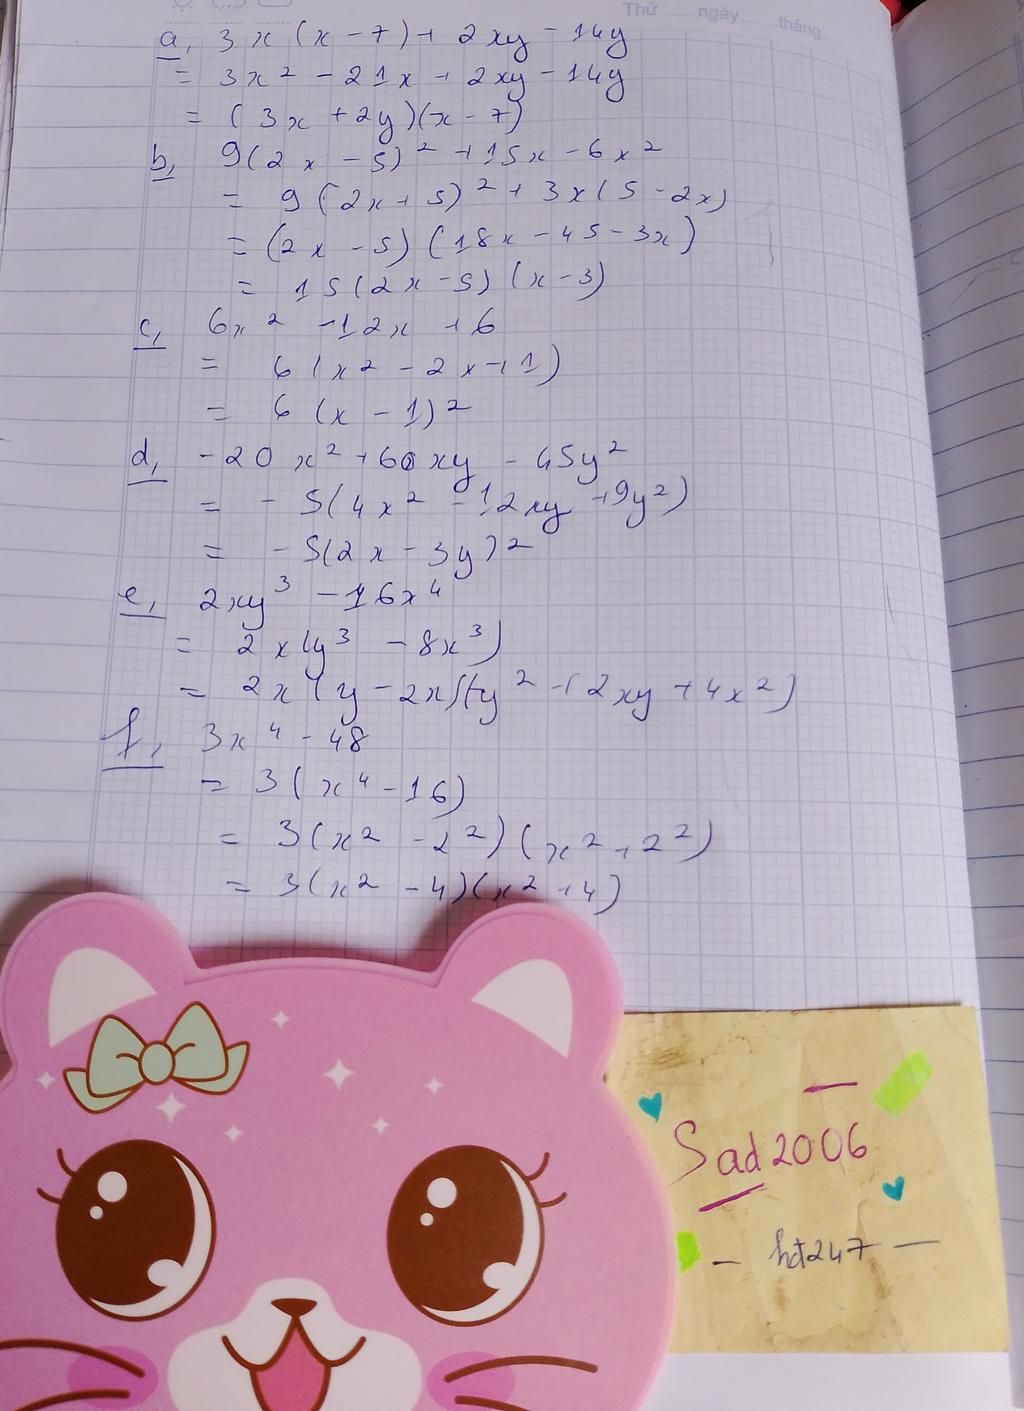 Thứ ngày tháng
a, 3x(x-7)+2xy-14y
= 3x² - 21x + 2xy - 14y
= (3x + 2y)(x - 7)
b, 9(2x - 5)² + 15x - 6x²
= 9(2x + 5)² + 3x(5 - 2x)
= (2x - 5)(18x - 45 - 3x)
= 15(2x - 5)(x - 3)
c, 6x² - 12x + 6
= 6(x² - 2x + 1)
= 6(x - 1)²
d, -20x² + 60xy - 45y²
= -5(4x² - 12xy + 9y²)
= -5(2x - 3y)²
e, 2xy³ - 16x⁴
= 2x(y³ - 8x³)
= 2x(y - 2x)(y² + 2xy + 4x²)
f, 3x⁴ - 48
= 3(x⁴ - 16)
= 3(x² - 2²)(x² + 2²)
= 3(x² - 4)(x² + 4)
Sad2006
- hđ247 -